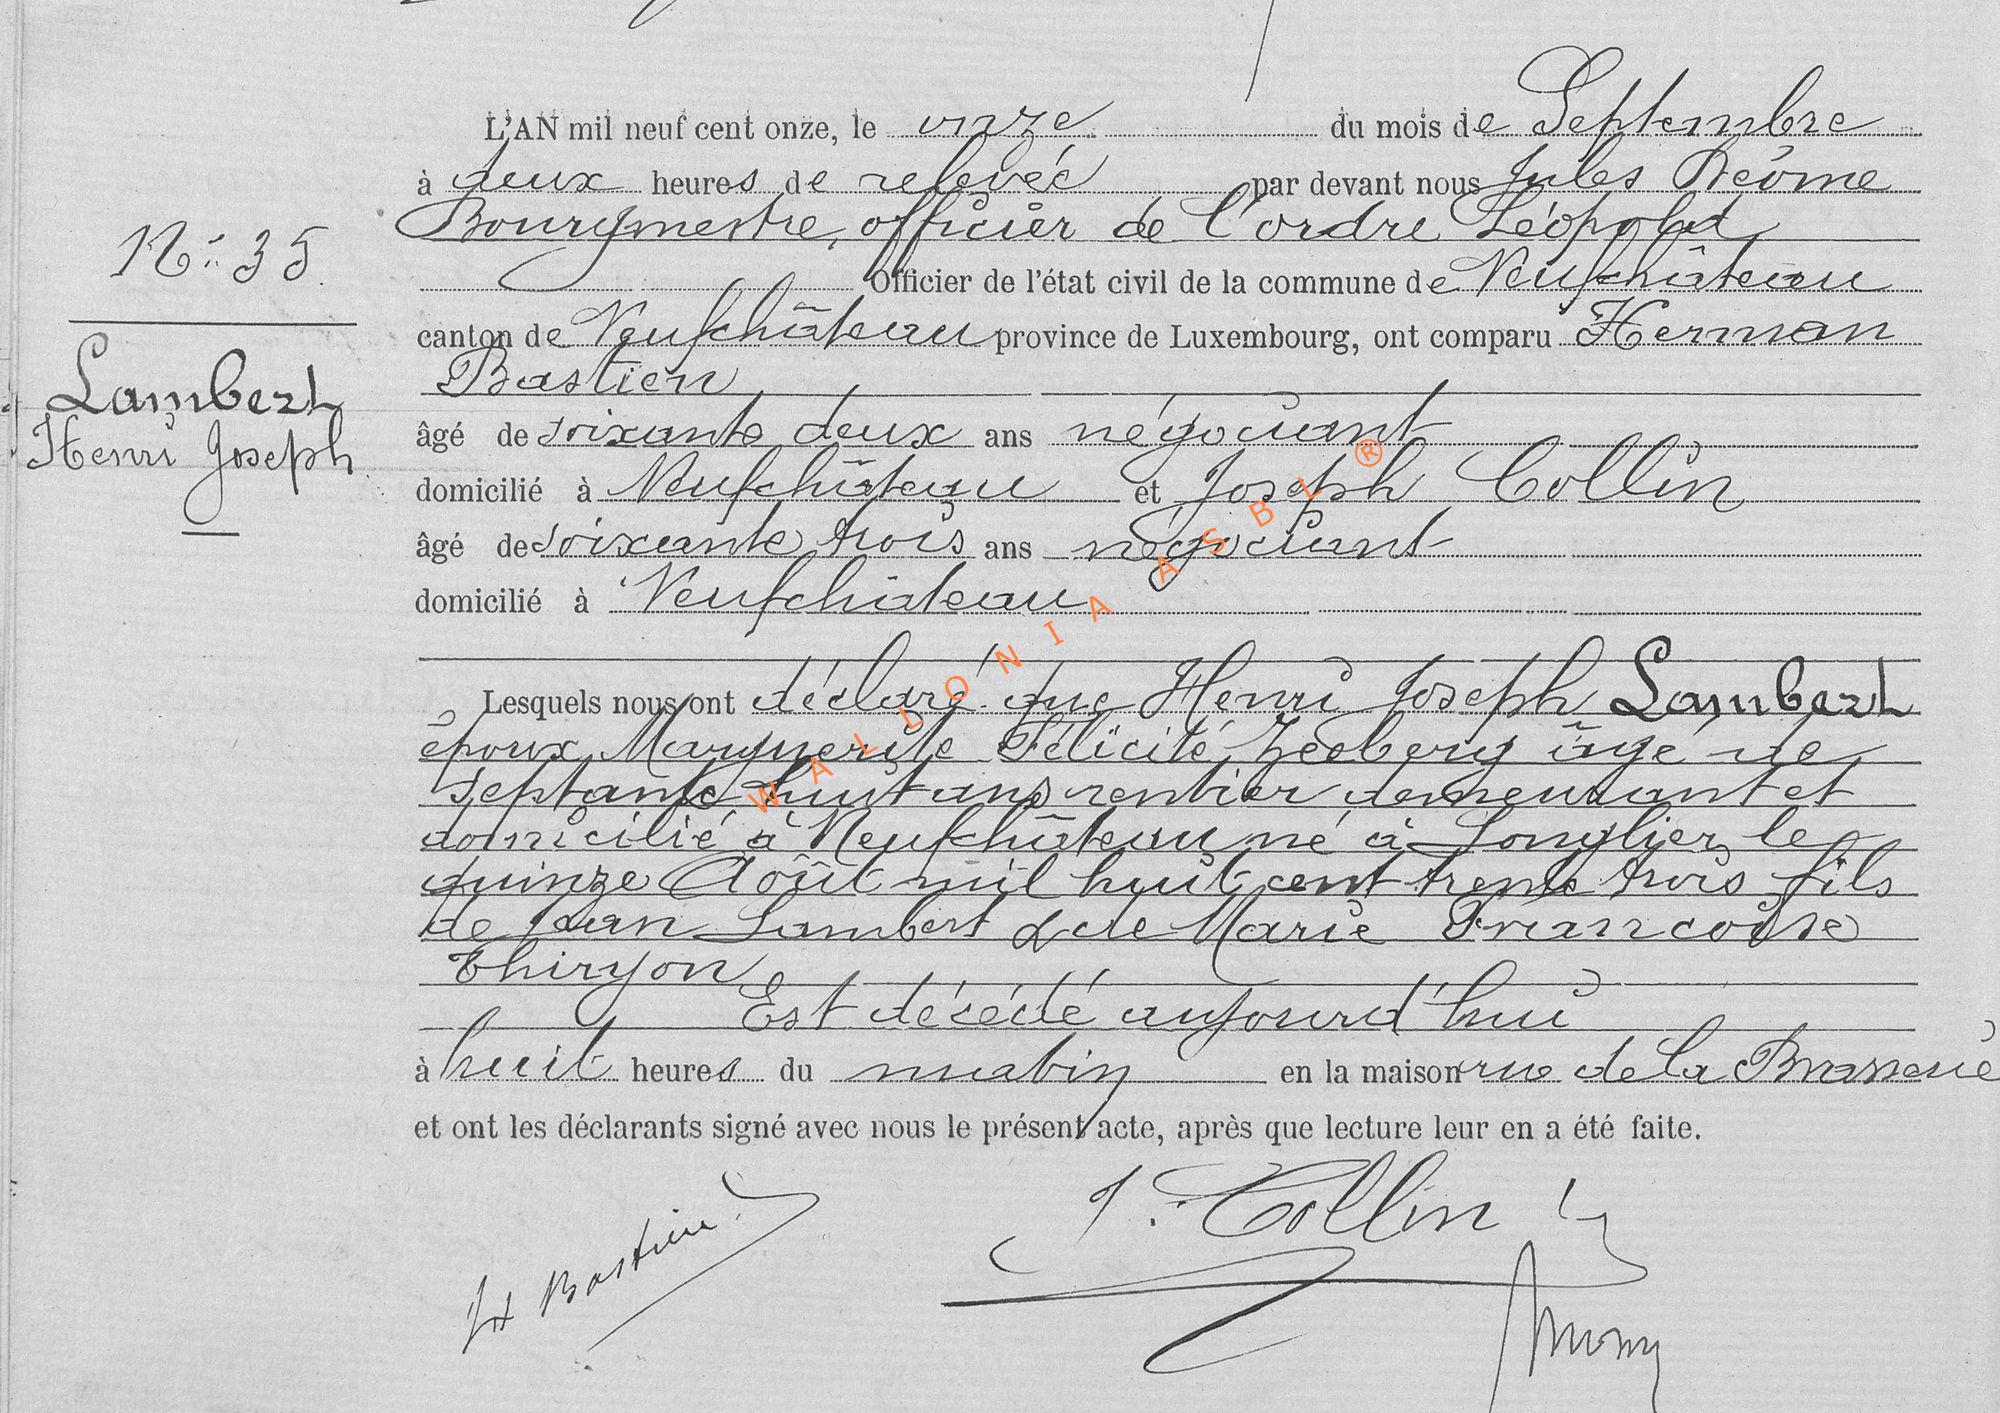 L'AN mil neuf cent onze, le onze du mois de Septembre
à deux heures de relevée par devant nous Jules
Bourgmestre, officier de l'ordre Léopold
Officier de l'état civil de la commune de Neufchâteau
canton de Neufchâteau province de Luxembourg, ont comparu Herman
Bastien
N° 35.
Lambert
Henri Joseph
âgé de soixante deux ans négociant
domicilié à Neufchâteau et Joseph Collin
âgé de soixante trois ans négociant
domicilié à Neufchâteau
Lesquels nous ont déclaré que Henri Joseph Lambert
époux Marguerite Félicité âgé de
septante huit ans rentier demeurant et
domicilié à Neufchâteau né à Longlier le
quinze Août mil huit cent trente trois fils
de Jean Lambert & de Marie Françoise
Thiryon
Est décédé aujourd'hui
à huit heures du matin en la maison rue de la Brasserie
et ont les déclarants signé avec nous le présent acte, après que lecture leur en a été faite.
J. Collin
Bastien
WALLONIA ASBL ®